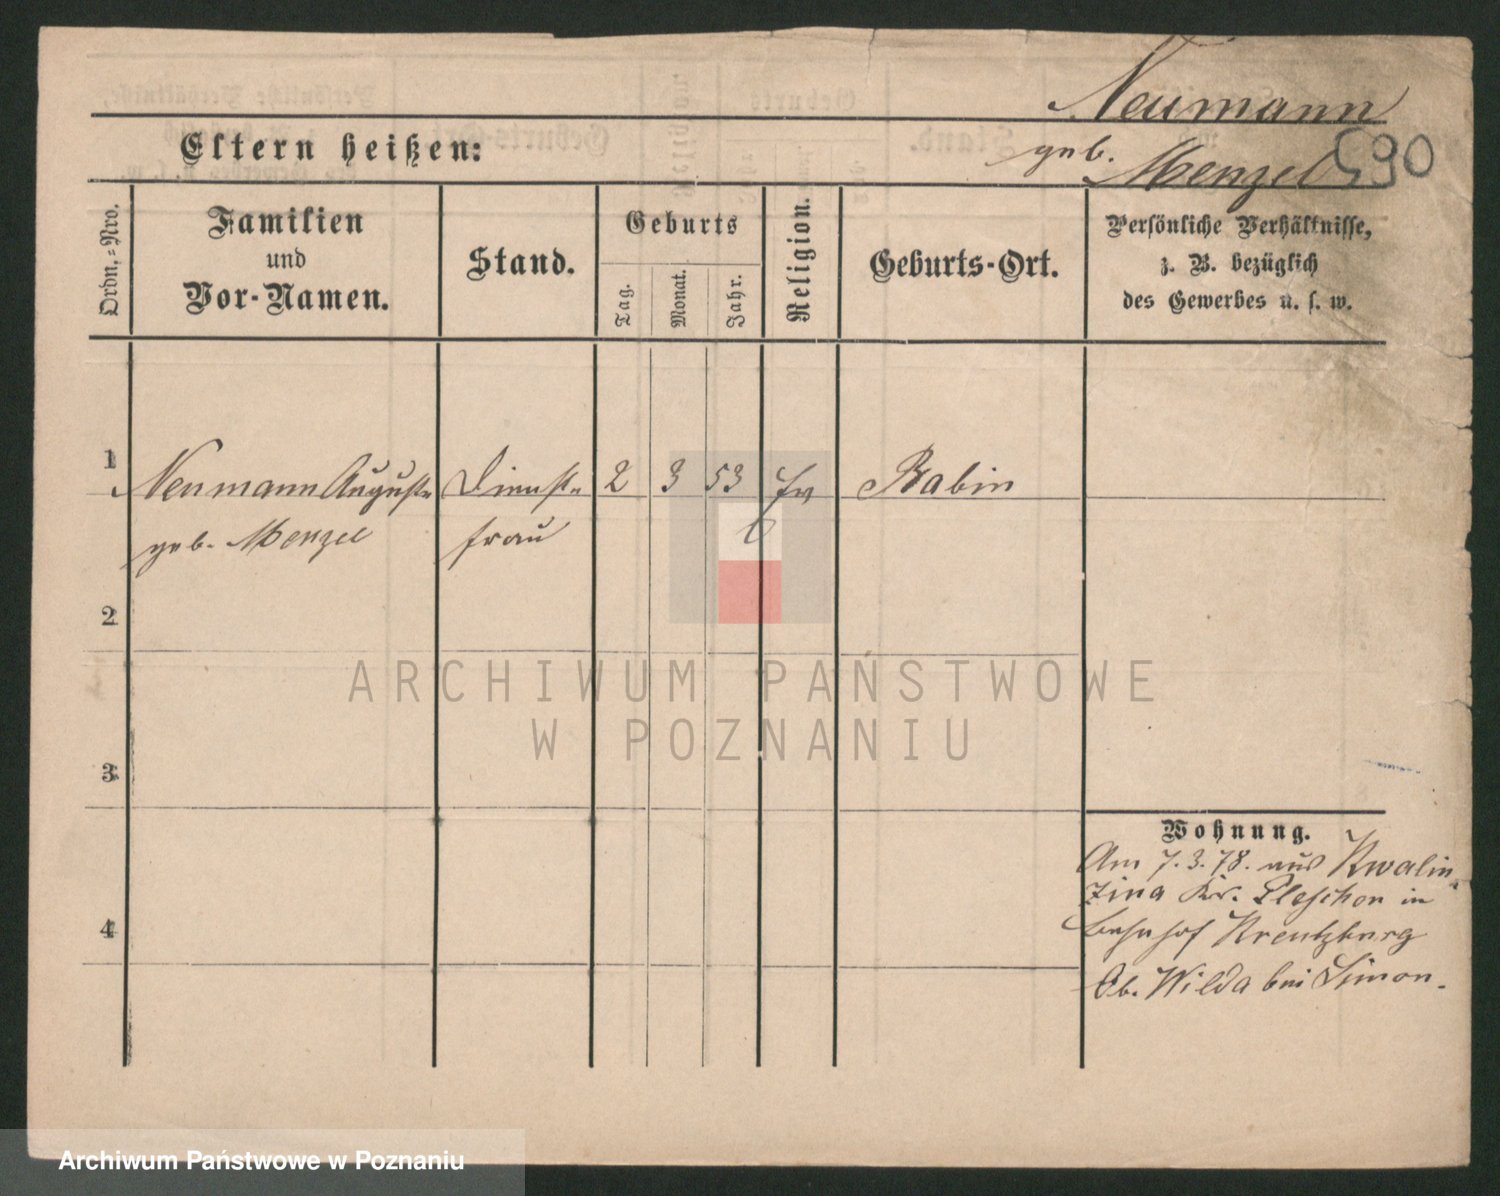 Neumann
geb. Menzel
590
Eltern heißen:
Ordn.-Nro.
Familien
und
Vor-Namen.
Stand.
Geburts
Tag.
Monat.
Jahr.
Religion.
Geburts-Ort.
Persönliche Verhältnisse,
z. B. bezüglich
des Gewerbes u. s. w.
1
Neumann Auguste
geb. Menzel
Dienst-
frau
2
3
53
ev
Babin
2
ARCHIWUM PAŃSTWOWE
W POZNANIU
3
Wohnung.
Am 7.3.78. aus
Zina Kr. Pleschen in
4
Bahnhof Kreutzburg
Ob. Wilda bei Simon.
Archiwum Państwowe w Poznaniu